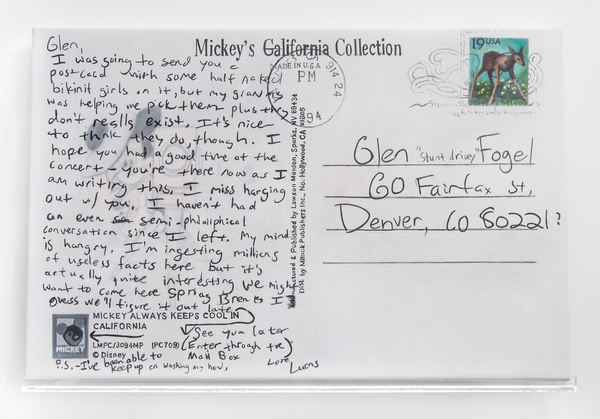 Mickey's California Collection
Glen,
I was going to send you a
postcard with some half naked
bikinit girls on it, but my grandma
was helping me pick them plus they
don't really exist. It's nice
to think they do, though. I
hope you had a good time at the
concert - you're there now as I
am writing this. I miss hanging
out w/ you. I haven't had
an even semi-philosiphical
conversation since I left. My mind
is hungry. I'm ingesting millions
of useless facts here but it's
actually quite interesting We might
want to come here Spring Break I
guess we'll figure it out later
MICKEY ALWAYS KEEPS COOL IN
CALIFORNIA
LMPC/3094MP (PC709)
© Disney
MICKEY
See you later
(Enter through the)
Mail Box
Love
Lucas
P.S. - I've been able to
keep up on washing my
MADE IN U.S.A.
PM
24
94
& Published by Lawson Mardon, Sparks, NV 89434
Dist. by Mitock Publishers Inc., No. Hollywood, CA
19USA
Glen "stunt driver" Fogel
60 Fairfax St,
Denver, CO 80221?